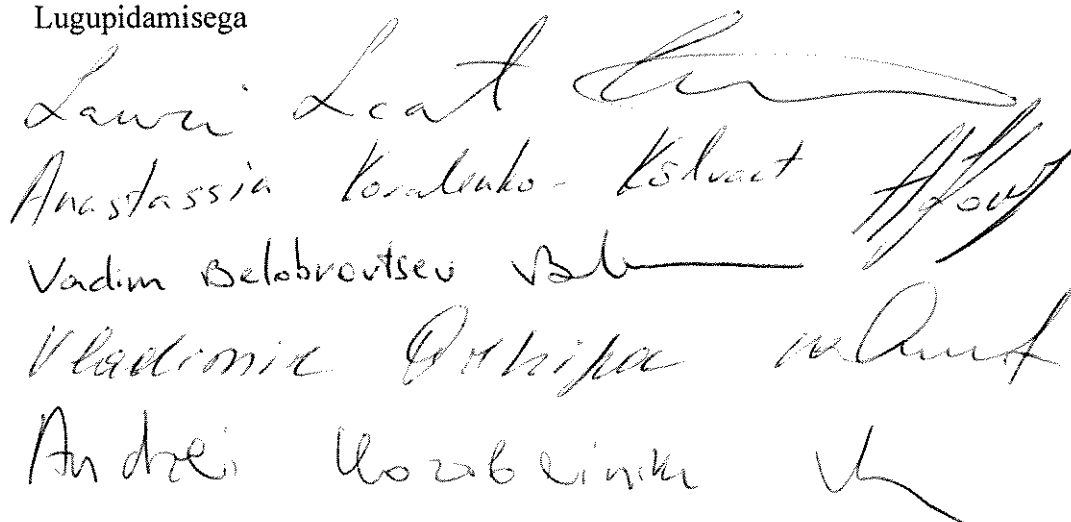 Lugupidamisega
Lauri Laat
Anastassia Kovalenko-Kõlvart
Vadim Belobrovtsev
Vladimir Arhipov
Andrei Korobeinik